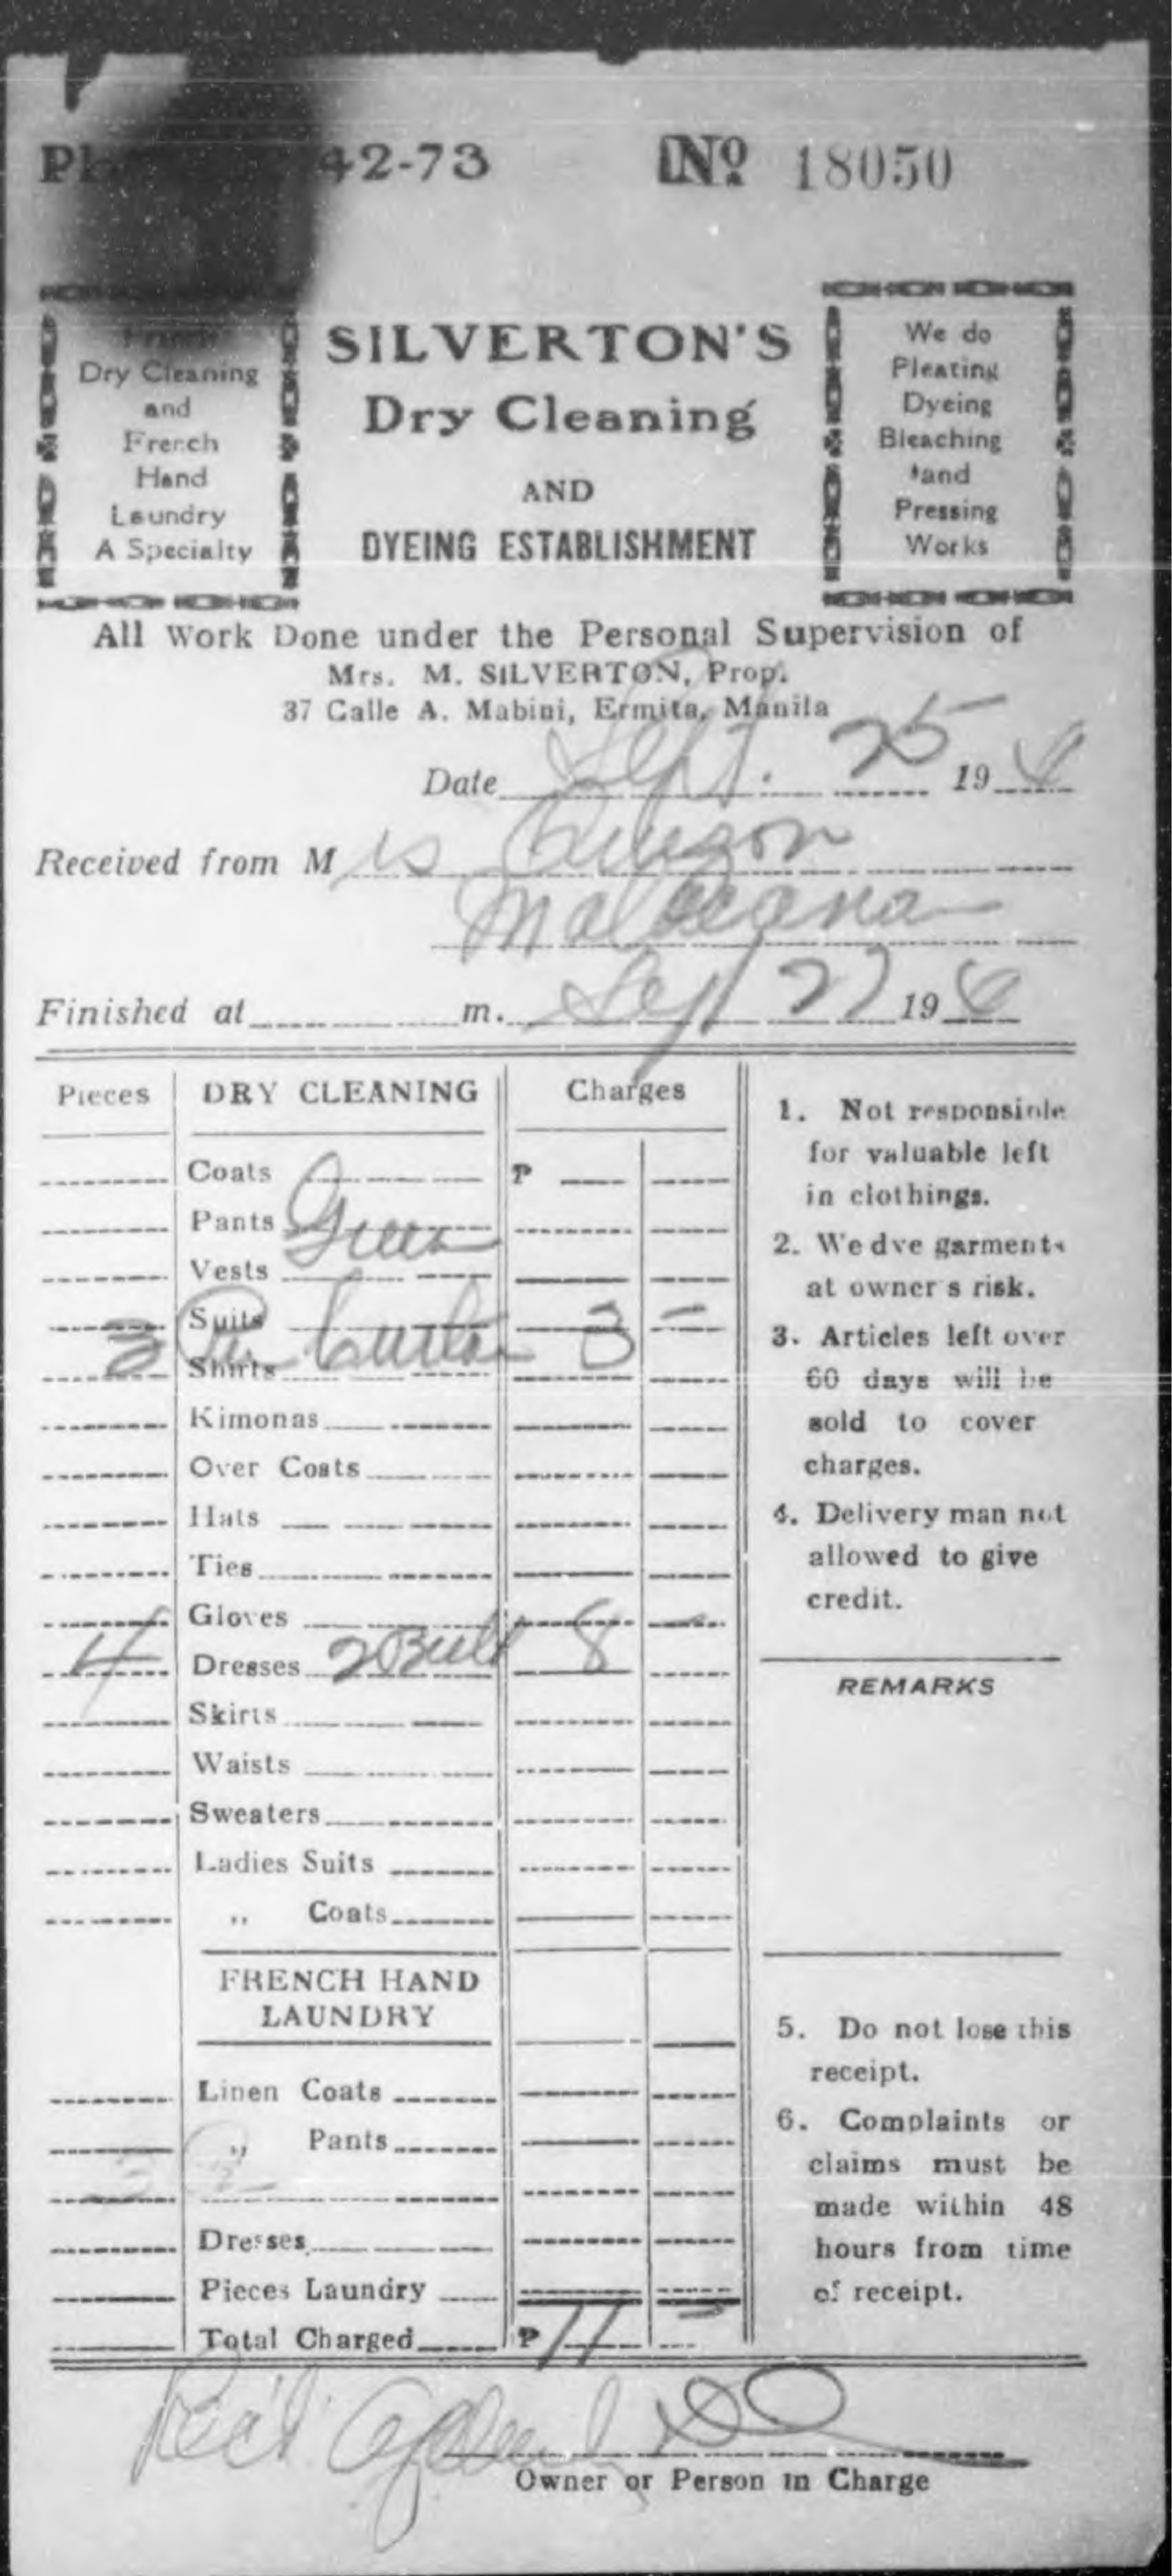 42-73 Nº 18050
Dry Cleaning
and
French
Hand
Laundry
A Specialty
SILVERTON'S
Dry Cleaning
AND
DYEING ESTABLISHMENT
We do
Pleating
Dyeing
Bleaching
and
Pressing
Works
All Work Done under the Personal Supervision of
Mrs. M. SILVERTON, Prop.
37 Calle A. Mabini, Ermita, Manila
Date Sept. 25 19
Received from M rs Quezon
Malacanan
Finished at m. Sept 27 19
Pieces DRY CLEANING Charges
Coats ₱
Pants Green
Vests
Suits
3 Pr. Curtain 3 –
Shirts
Kimonas
Over Coats
Hats
Ties
Gloves
4 Dresses 2 Belt 8 –
Skirts
Waists
Sweaters
Ladies Suits
,, Coats
FRENCH HAND
LAUNDRY
Linen Coats
,, Pants
Dresses
Pieces Laundry
Total Charged ₱ 11 –
1. Not responsible
for valuable left
in clothings.
2. We dye garments
at owner's risk.
3. Articles left over
60 days will be
sold to cover
charges.
4. Delivery man not
allowed to give
credit.
REMARKS
5. Do not lose this
receipt.
6. Complaints or
claims must be
made within 48
hours from time
of receipt.
Rec'd
Owner or Person in Charge